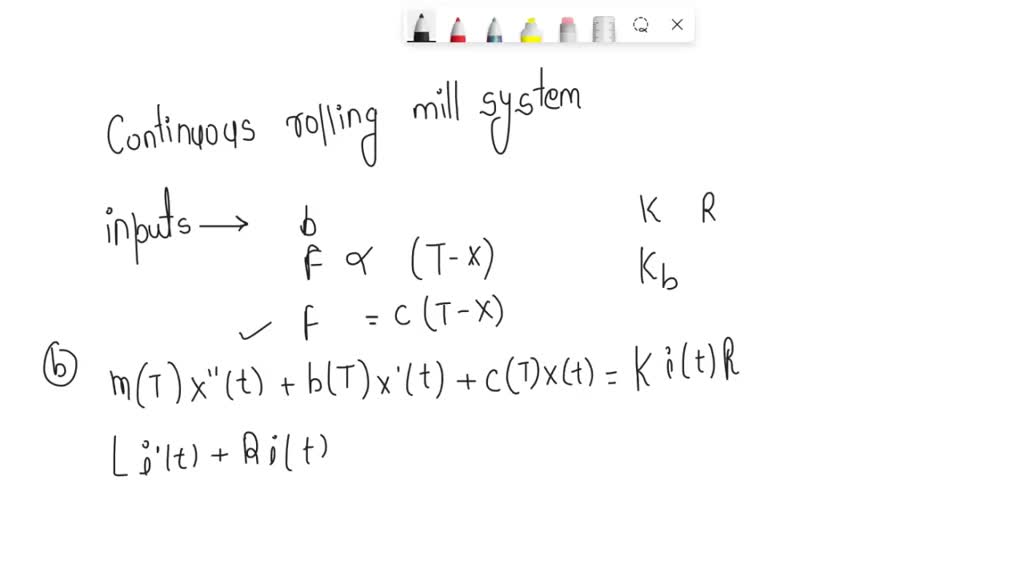 Continuous rolling mill system
inputs → b
K R
F ∝ (T-x)
K_b
✓ F = c (T-x)
ⓑ m(T) x''(t) + b(T) x'(t) + c(T) x(t) = K i(t) R
L i'(t) + R i(t)